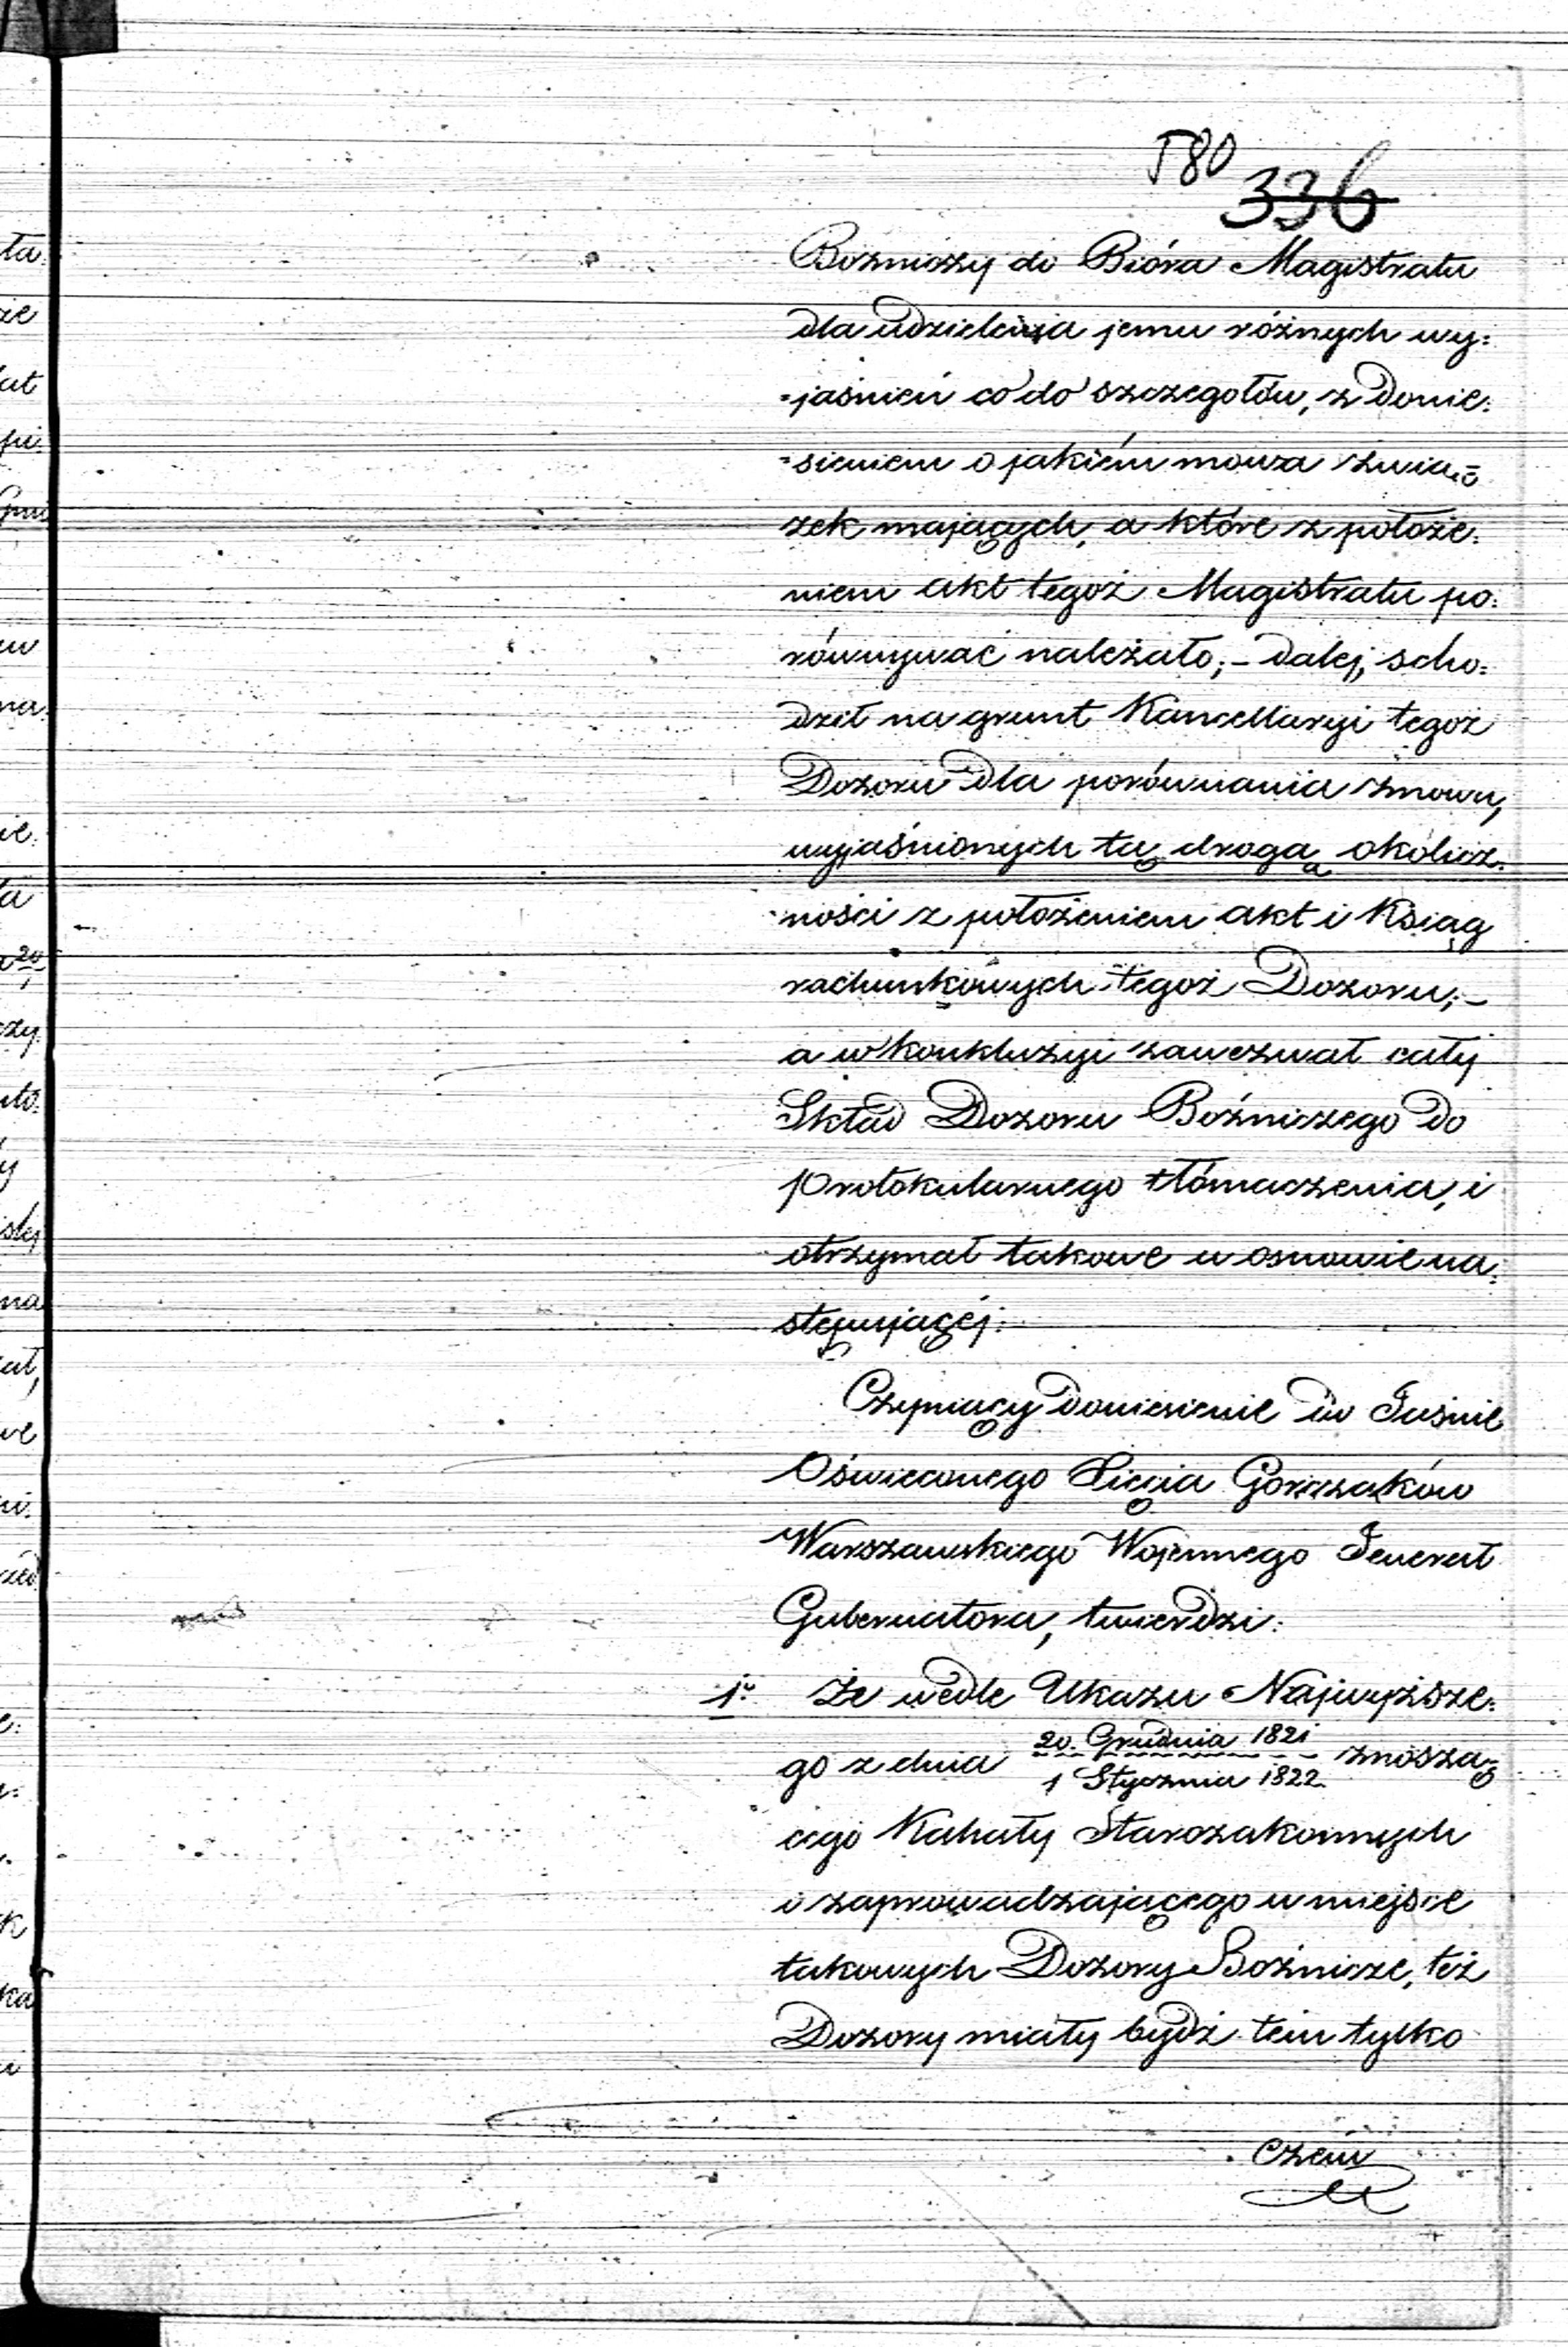 580
336
Bożniczy do Bióra Magistratu
dla udzielenia jemu różnych wy:
=jaśnień co do szczegołów, z donie:
=sieniem o jakiém mowa związ=
zek mających, a które z położe:
niem akt tegoż Magistratu po:
równywać należało; – dalej, scho:
dził na grunt Kancellaryi tegoż
Dozoru dla porównania znowu,
wyjaśnionych tą drogą okolicz:
ności z położeniem akt i Ksiąg
rachunkowych tegoż Dozoru; –
a w konkluzyi zawezwał cały
Skład Dozoru Bożniczego do
protokularnego tłómaczenia, i
otrzymał takowe w osnowie na:
stępującéj:
Czyniący doniesienie do Jaśnie
Oświeconego Xięcia Gorczaków
Warszawskiego Wojennego Jenerał
Gubernatora, twierdzi:
1º. Że wedle Ukazu Najwyższe:
go z dnia 20. Grudnia 1821 / 1 Stycznia 1822 znoszą:
cego Kahały Starozakonnych
i zaprowadzającego w miejsce
takowych Dozory Bożnicze, też
Dozory miały bydź tém tylko
czém